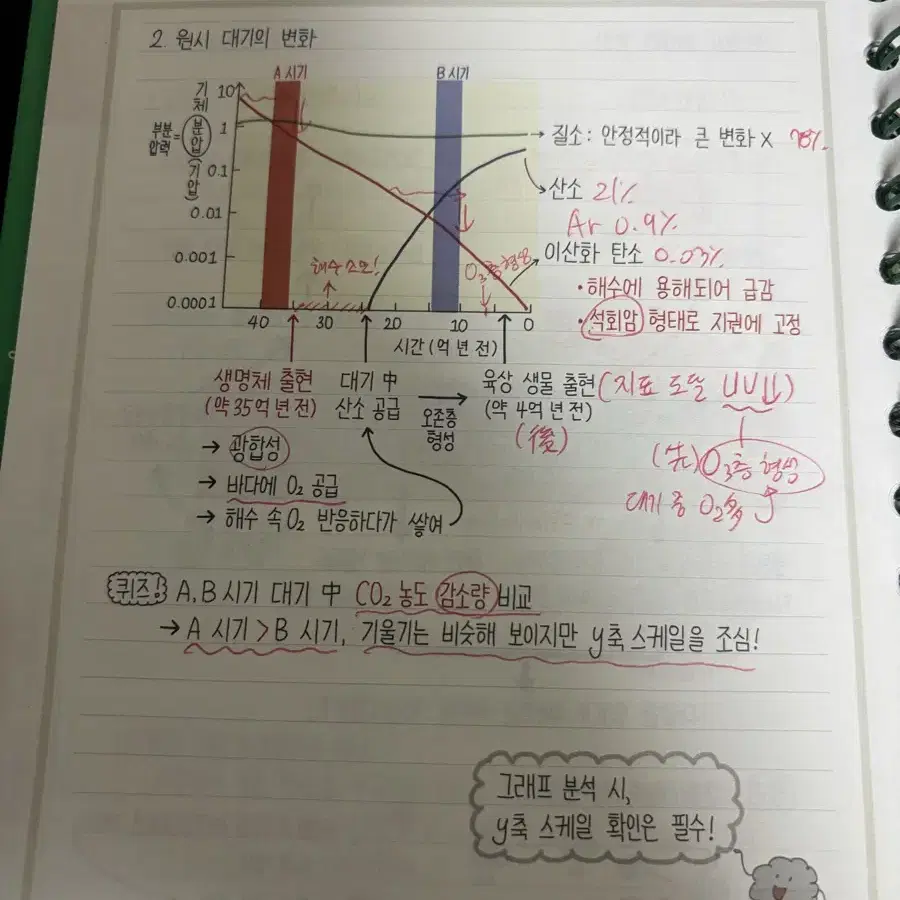 2. 원시 대기의 변화
A 시기
B 시기
기체
분압
(기압)
부분
압력 =
10
1
0.1
0.01
0.001
0.0001
40
30
20
10
0
시간 (억 년 전)
해수 소모!
O₃층 형성
→ 질소: 안정적이라 큰 변화 X 78%
산소 21%
Ar 0.9%
이산화 탄소 0.03%
• 해수에 용해되어 급감
• 석회암 형태로 지권에 고정
생명체 출현
(약 35억 년 전)
대기 中
산소 공급
오존층
형성
육상 생물 출현 (지표 도달 UV↓)
(약 4억 년 전)
(後)
(先) O₃층 형성
대기 중 O₂
→ 광합성
→ 바다에 O₂ 공급
→ 해수 속 O₂ 반응하다가 쌓여
퀴즈! A, B 시기 대기 中 CO₂ 농도 감소량 비교
→ A 시기 > B 시기, 기울기는 비슷해 보이지만 y축 스케일을 조심!
그래프 분석 시,
y축 스케일 확인은 필수!